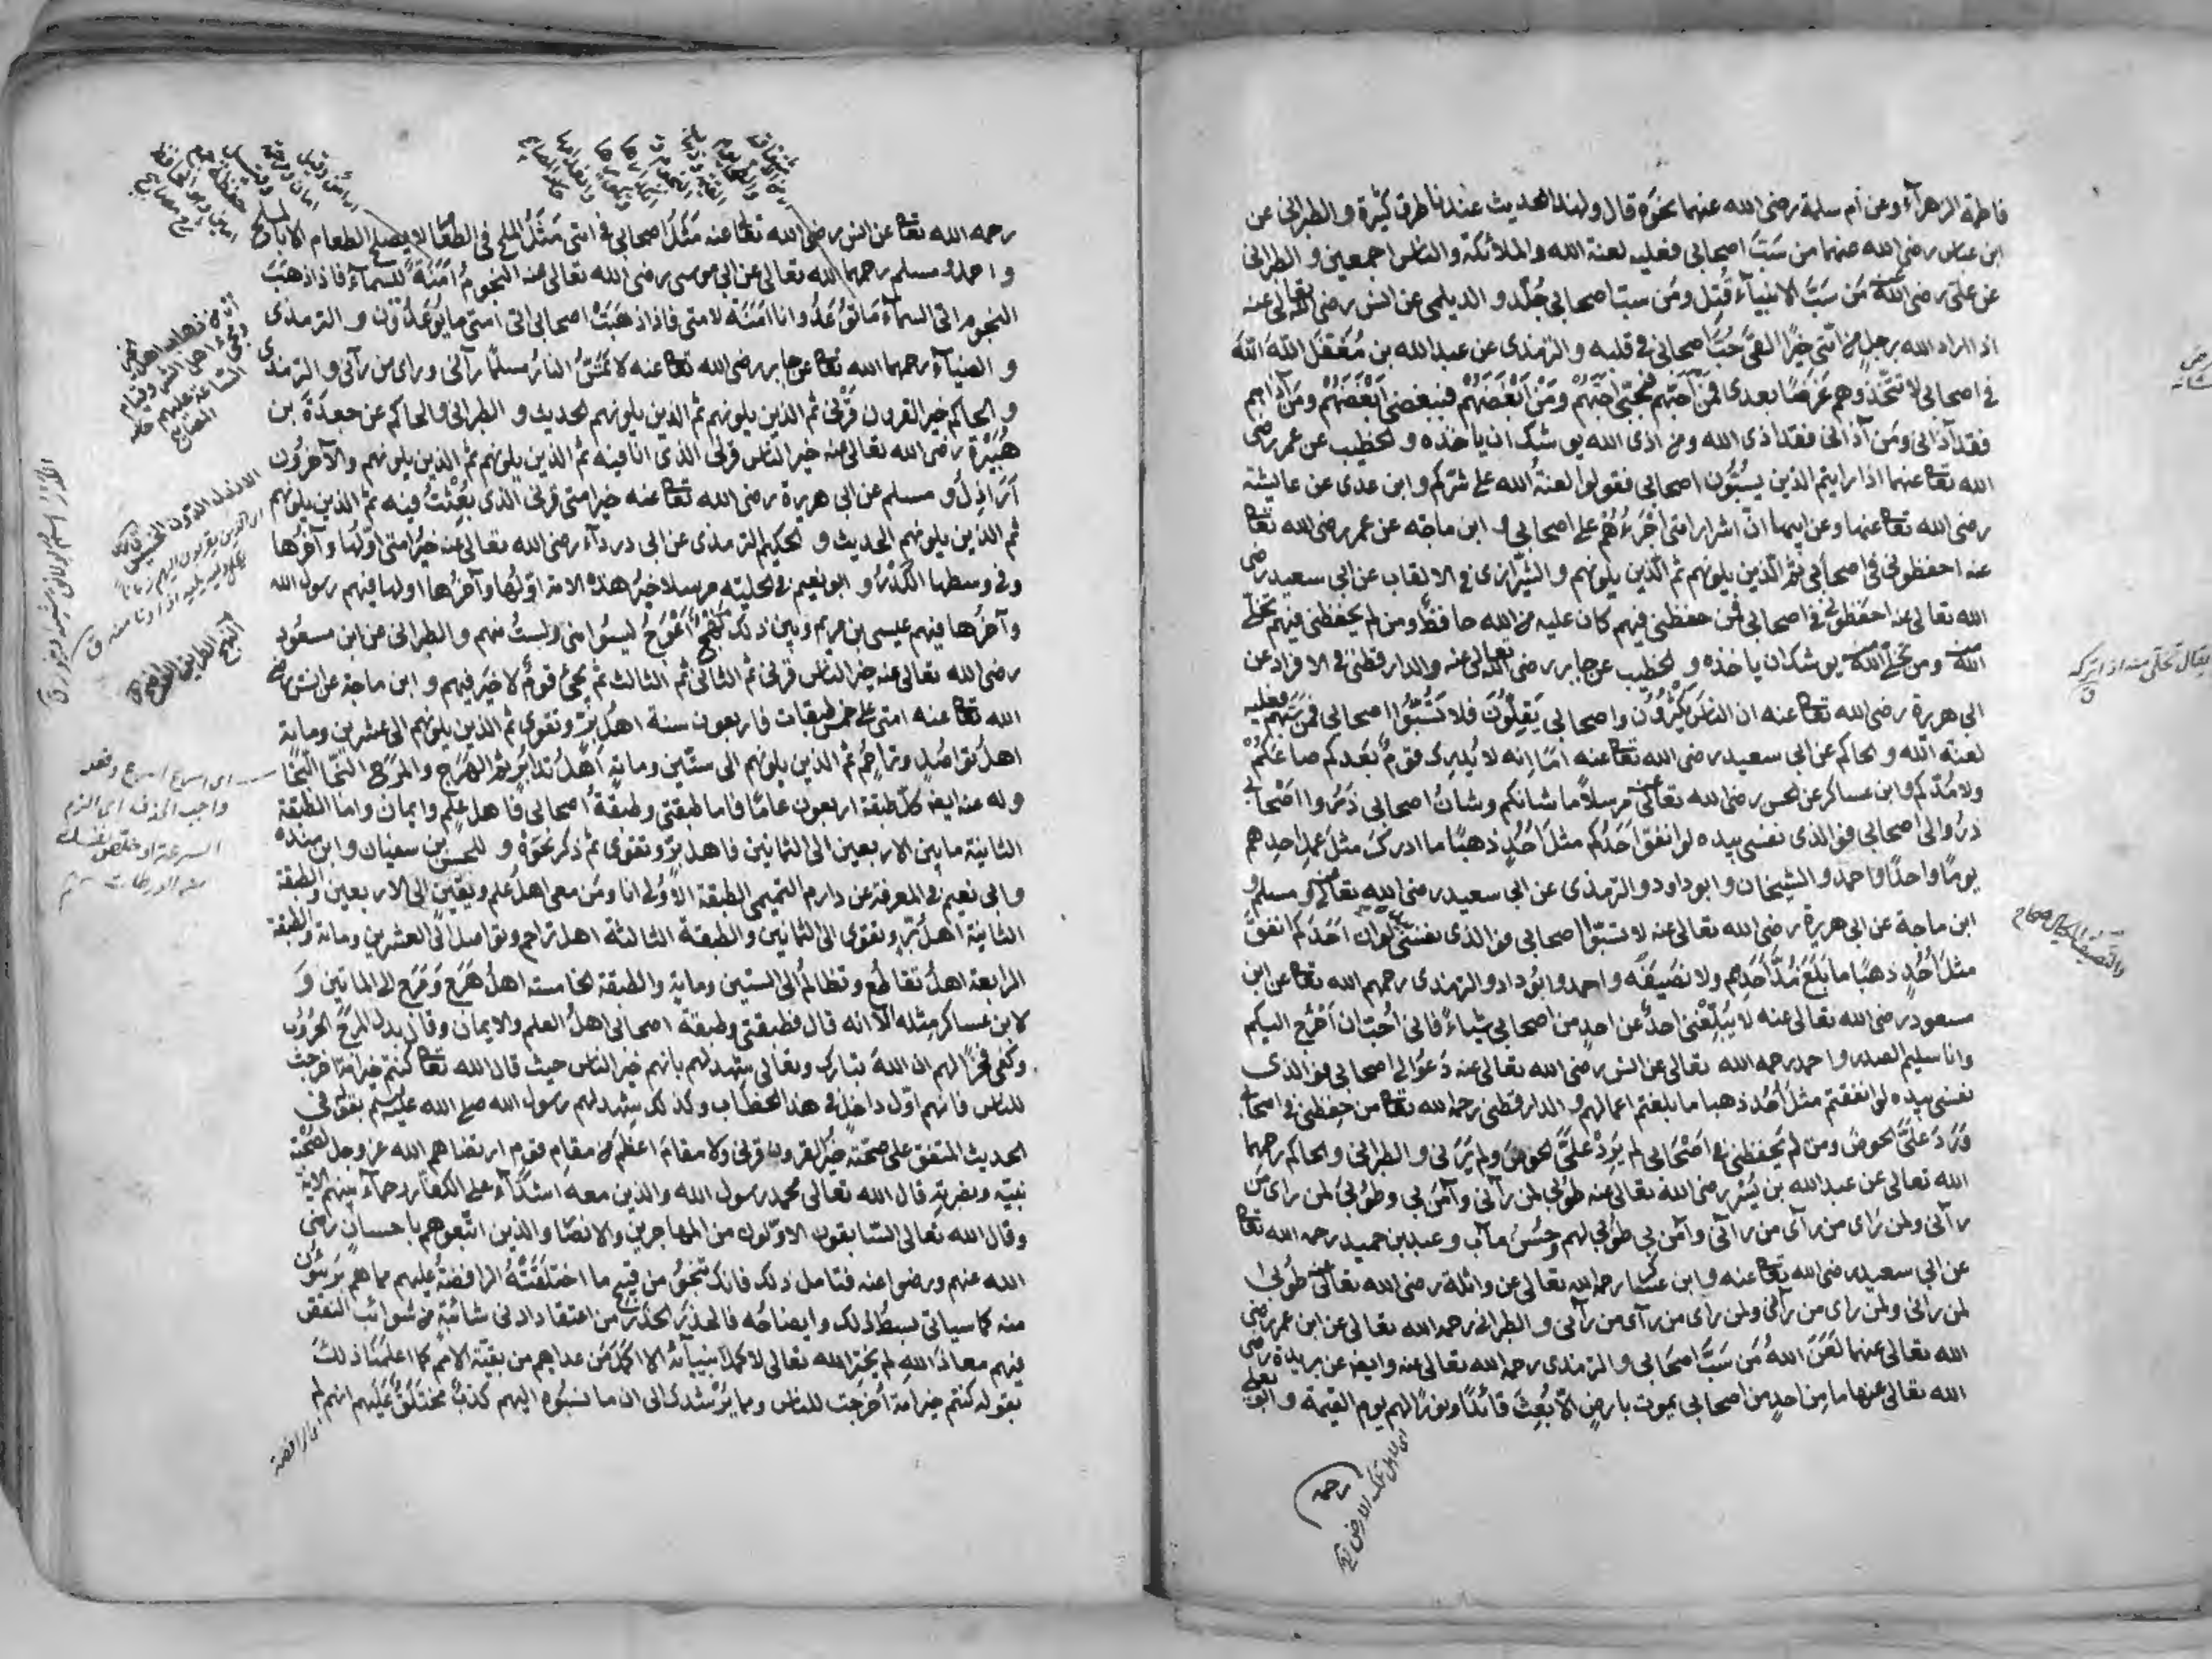 فاطمة الزهرآء وعن أم سلمة رضى الله عنهما نحوه قال ولهذا الحديث عندنا طرق كثيرة و الطبرانى عن
ابن عباس رضى الله عنهما من سَبَّ اصحابى فعليه لعنة الله والملائكة والناس اجمعين و الطبرانى
عن على رضى الله عنه مَن سَبَّ الانبيآء قُتِل ومَن سبّ اصحابى جُلِّد و الديلمى عن انس رضى الله تعالى عنه
اذا اراد الله برجلٍ من امتى خيرًا القى حُبَّ اصحابى فى قلبه و الترمذى عن عبد الله بن مُغَفَّل اللهَ اللهَ
فى اصحابى لا تتّخذوهم غَرَضًا بعدى فمَن احبّهم فبحبّى احبّهم ومَن أَبْغَضَهُمْ فببغضى اَبْغَضَهُمْ ومَن آذاهم
فقد آذانى ومَن آذانى فقد اذى الله ومن اذى الله يوشك ان ياخذه و الخطيب عن عمر رضى
الله تعا عنهما اذا رايتم الذين يسُبُّون اصحابى فقولوا لعنةُ الله على شرّكم و ابن عدى عن عايشة
رضى الله تعا عنها وعن ابيها انّ اشرار امتى اَجْرَءُهُمْ على اصحابى و ابن ماجه عن عمر رضى الله تعا
عنه احفظونى فى اصحابى ثم الّذين يلونهم ثم الّذين يلونهم و الشيرازى فى الالقاب عن ابى سعيد رضى
الله تعالى عنه احفظونى فى اصحابى فمن حفظنى فيهم كان عليه من الله حافظٌ ومن لم يحفظنى فيهم تخلّى
الله منه ومن تخلّى الله منه يوشك ان ياخذه و الخطيب عن جابر رضى الله تعالى عنه والدارقطنى فى الافراد عن
ابى هريرة رضى الله تعا عنه ان الناس يَكْثُرُون واصحابى يَقِلُّونَ فلا تَسُبُّوا اصحابى فمَن سبّهم فعليه
لعنة الله و الحاكم عن ابى سعيد رضى الله تعا عنه امّا انه لا يُدرِك قومٌ بعدكم صاعَكُمْ
ولا مُدّكم و ابن عساكر عن الحسن رضى الله تعالى عنه مرسلاً ما شانكم وشانُ اصحابى ذَرُوا اصْحَابى
ذَرُوا لى اصحابى فو الذى نفسى بيده لو انفق احَدُكم مثلَ اُحُدٍ ذهبًا ما ادرك مثلَ عملِ احدِهم
يومًا واحدًا و احمد و الشيخان و ابو داود و الترمذى عن ابى سعيد رضى الله تعالى عنه و مسلم و
ابن ماجة عن ابى هريرة رضى الله تعالى عنه لا تسبّوا اصحابى فو الذى نفسى بيده لو ان احَدَكم انفق
مثلَ اُحُدٍ ذهبًا ما بَلَغَ مُدَّ اَحَدِهم ولا نَصيفَه و احمد و ابو داود و الترمذى رحمهم الله تعا عن ابن
مسعود رضى الله تعالى عنه لا يُبلِّغْنى احدٌ عن احدٍ من اصحابى شياءً فانى اُحبّ ان اَخْرُج اليكم
وانا سليم الصدر و احمد رحمه الله تعالى عن انس رضى الله تعالى عنه دَعُوا لى اصحابى فو الذى
نفسى بيده لو انفقتم مثل اُحُدٍ ذهبا ما بلغتم اعمالهم و الدارقطنى رحمه الله تعا من حفظنى فى اصحابى
وَرَدَ عَلَىَّ الحوضَ ومن لم يَحفظنى فى اَصْحَابى لم يَرِدْ علىَّ الحوضَ ولم يَرَنى و الطبرانى و الحاكم رحمهما
الله تعالى عن عبد الله بن بُسْر رضى الله تعالى عنه طُوبى لمن رآنى وآمَن بى وطوبى لمن راى مَن
رآنى ولمن رَاى مَن رآى من رآنى وآمَن بى طوبى لهم وحُسْنُ مآب و عبد بن حميد رحمه الله تعا
عن ابى سعيد رضى الله تعا عنه و ابن عساكر رحمه الله تعالى عن واثلة رضى الله تعالى عنه طُوبى
لمن رانى ولمن راى من رآنى ولمن رَاى من رآى من رآنى و الطبرانى رحمه الله تعالى عن ابن عمر رضى
الله تعالى عنهما لَعَنَ اللهُ مَن سَبَّ اصحَابى و الترمذى رحمه الله تعالى عنه و ايضا عن بريدة رضى
الله تعالى عنها ما مِن احدٍ من اصحابى يموت بارضٍ الّا بُعِثَ قائدًا ونورًا لهم يوم القيمة و ابو يعلى
رحمه
اى لاهل تلك الارض
يقال تخلّى منه اذا تركه
رحمه الله تعا عن انس رضى الله تعا عنه مَثَلُ اصحابى فى امتى مَثَلُ الملح فى الطعام لا يصلح الطعام الا بالملح
و احمد و مسلم رحمهما الله تعالى عن ابى موسى رضى الله تعالى عنه النجومُ اَمَنَةٌ للسمآء فاذا ذهَبَت
النجوم اتى السمآءَ ما تُوعَدُ وانا اَمَنَة لاصحابى فاذا ذهَبَتْ اصحابى اتى امتى ما يُوعَدُون و الترمذى
و الضيآء رحمهما الله تعا عن جابر رضى الله تعا عنه لا تَمَسّ النارُ مسلمًا رآنى وراى من رآنى و الترمذى
و الحاكم خير القرون قَرْنى ثم الذين يلونهم ثم الذين يلونهم الحديث و الطبرانى و الحاكم عن جعدَة بن
هُبَيْرَة رضى الله تعالى عنه خير الناس قرنى الذى انا فيه ثم الذين يلونهم ثم الذين يلونهم والآخرُون
اَرَاذِلُ و مسلم عن ابى هريرة رضى الله تعا عنه خير امتى قرنى الذى بُعِثْتُ فيه ثم الذين يلونهم
ثم الذين يلونهم الحديث و الحكيم الترمذى عن ابى درداء رضى الله تعالى عنه خيرُ امتى اوّلها وآخرُها
وفى وسطها الكَدَرُ و ابو نعيم فى الحلية مرسلا خيرُ هذه الامة اوّلُها وآخرُها اولها فيهم رسول الله
وآخرُها فيهم عيسى بن مريم وبين ذلك نهجٌ اَعْوَجُ ليسُوا منى ولستُ منهم و الطبرانى عن ابن مسعود
رضى الله تعالى عنه خير الناس قرنى ثم الثانى ثم الثالث ثم يجئُ قومٌ لا خير فيهم و ابن ماجة عن انس رضى
الله تعا عنه امتى على خمس طبقات فاربعون سنة اهلُ بِرّ وتقوى ثم الذين يلونهم الى عشرين وماية
اهلُ تواصُلٍ وتراحُم ثم الذين يلونهم الى ستّين وماية اَهلُ تدابُر ثم الهَرَج والمَرَج النّجَا النّجَا
وله عنه ايضا كلّ طبقة اربعون عامًا فاما طبقتى وطبقةُ اصحابى فاهل علم وايمان واما الطبقة
الثانية ما بين الاربعين الى الثمانين فاهل برّ وتقوى ثم ذكر نحوَهُ و للحسن بن سفيان و ابن منده
و ابى نعيم فى المعرفة عن دارم التميمى الطبقة الاُولى انا ومَن معى اهلُ علم ويقين الى الاربعين والطبقة
الثانية اهلُ برّ وتقوى الى الثمانين والطبقة الثالثة اهل تراحم وتواصل الى العشرين وماية والطبقة
الرابعة اهلُ تقاطُع وتظالُم الى الستين وماية والطبقة الخامسة اهلُ هَرَج وَمَرَج الى المايتين وَ
لابن عساكر مثله الّا انه قال فطبقتى وطبقة اصحابى اهلُ العلم والايمان وقال بدل المرج الحُرُوب
وكفى فخرًا لهم ان الله تبارك وتعالى شهد لهم بانهم خير الناس حيث قال الله تعا كنتم خير امة اخرجت
للناس فانهم اوّل داخل فى هذا الخطاب وكذلك شهد لهم رسول الله صلى الله عليه وسلم بقوله فى
الحديث المتفق على صحّته خيرُ القرون قرنى ولا مقامَ اعظَم من مقامِ قومٍ ارتضاهم الله عز وجل لصُحْبة
نبيّه ونصرتِه قال الله تعالى محمد رسول الله والذين معه اشدّآء على الكفار رحمآء بينهم الاية
وقال الله تعالى السّابقون الاوّلون من المهاجرين والانصار والذين اتّبعوهم باحسانٍ رضى
الله عنهم ورضوا عنه فتامل ذلك فانك تنجُو من قبيح ما اختلَقَتْهُ الرافضةُ عليهم مما هم بَرِيئُون
منه كما سياتى بسطُ ذلك وايضاحُه فالحذَرَ الحذَرَ من اعتقاد ادنى شائبةٍ من شوائب النقص
فيهم معاذ الله لم يخترِ الله تعالى لاكمل انبيآئه الا اكملَ مَن عداهم من بقيّة الامم كما اعلمَنا ذلك
بقوله كنتم خير امة اُخرِجت للناس ومما يُرشدك الى ان ما نسَبُوه اليهم كذبٌ مختلَقٌ عليهم انهم لم
الرافضة